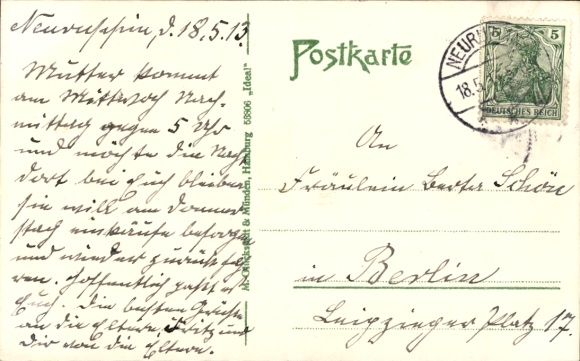 Neuruppin, d. 18.5.13.
Mutter kommt
am Mittwoch Nach-
mittag gegen 5 Uhr
und möchte die Nacht
dort bei Euch bleiben
sie will am Donner-
stach einkäufe besorgen
und wieder zurückfah-
ren. Hoffentlich passt es
Euch. Die besten Grüße
an die Eltern, Fritz und
Dir von die Eltern.
M. Glückstadt & Münden, Hamburg 58806 „Ideal"
Postkarte
NEURU
18.5
5 5
DEUTSCHES REICH
An
Fräulein Berta Schön
in Berlin
Leipziger Platz 17.